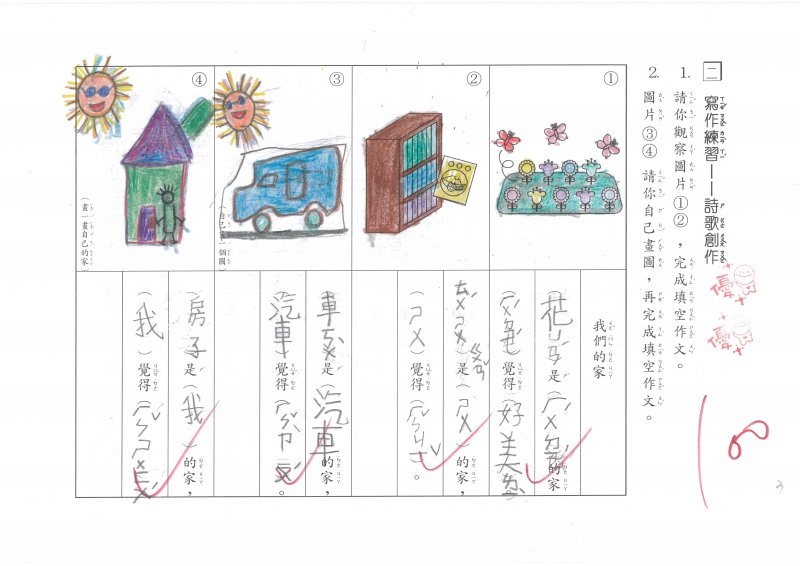 二 寫作練習——詩歌創作
1. 請你觀察圖片①②，完成填空作文。
2. 圖片③④ 請你自己畫圖，再完成填空作文。
①
②
③
（自己畫一個圖）
④
（畫一畫自己的家）
我們的家
是（ 的家，
（ 覺得（好美
是（ㄕㄨ）的家，
（ㄕㄨ）覺得（ ）。
車 是（汽車）的家，
（汽車）覺得（ ）。
（房子）是（我）的家，
（我）覺得（
優
優
100
3